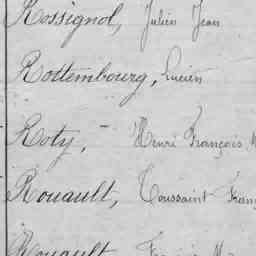 Rossignol, Julien Jean
Rottembourg, Lucien
Roty, - Henri François,
Rouault, Toussaint Franç
Rouault